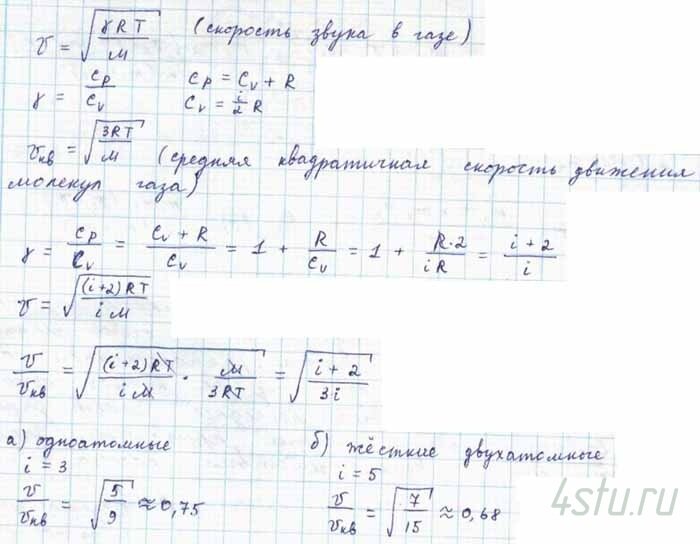 v = √(γRT/м) (скорость звука в газе)
γ = Cp/Cv    Cp = Cv + R
Cv = i/2 R
vкв = √(3RT/м) (средняя квадратичная скорость движения
молекул газа)
γ = Cp/Cv = (Cv + R)/Cv = 1 + R/Cv = 1 + R·2/iR = (i + 2)/i
v = √((i+2)RT/iм)
v/vкв = √((i+2)RT/iм · м/3RT) = √((i + 2)/3i)
а) одноатомные    б) жёсткие двухатомные
i = 3    i = 5
v/vкв = √(5/9) ≈ 0,75    v/vкв = √(7/15) ≈ 0,68
4stu.ru